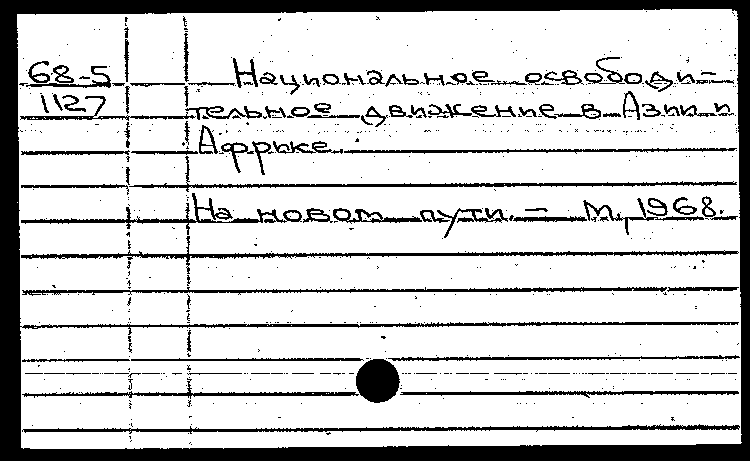 68-5
1127
Национальное освободи-
тельное движение в Азии и
Африке.
На новом пути. - М., 1968.